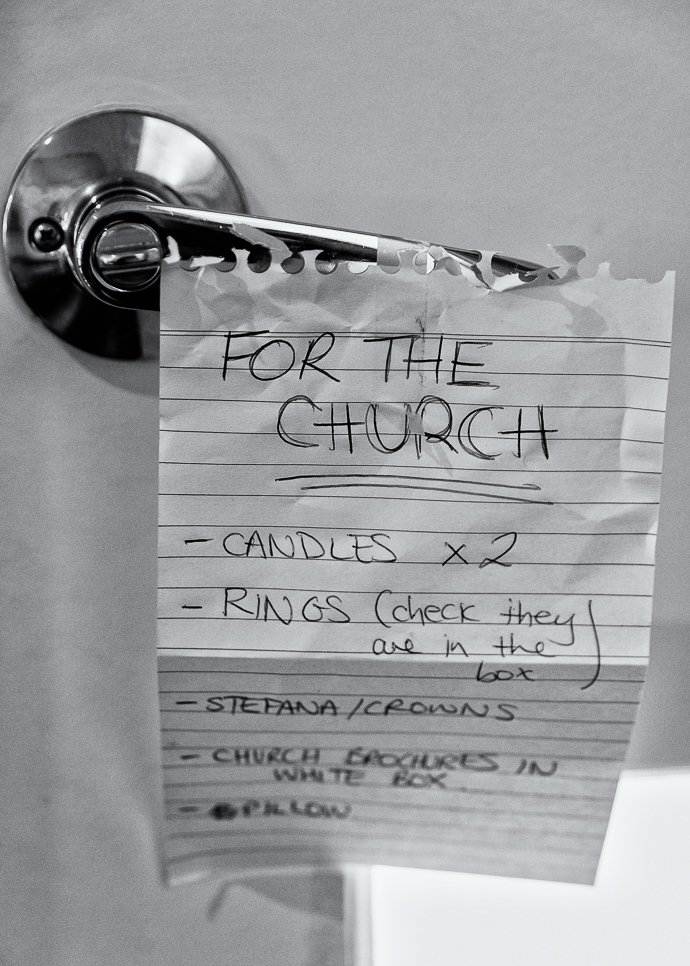 FOR THE
CHURCH
- CANDLES x2
- RINGS (check they
are in the
box)
- STEFANA/CROWNS
- CHURCH BROCHURES IN
WHITE BOX
- PILLOW